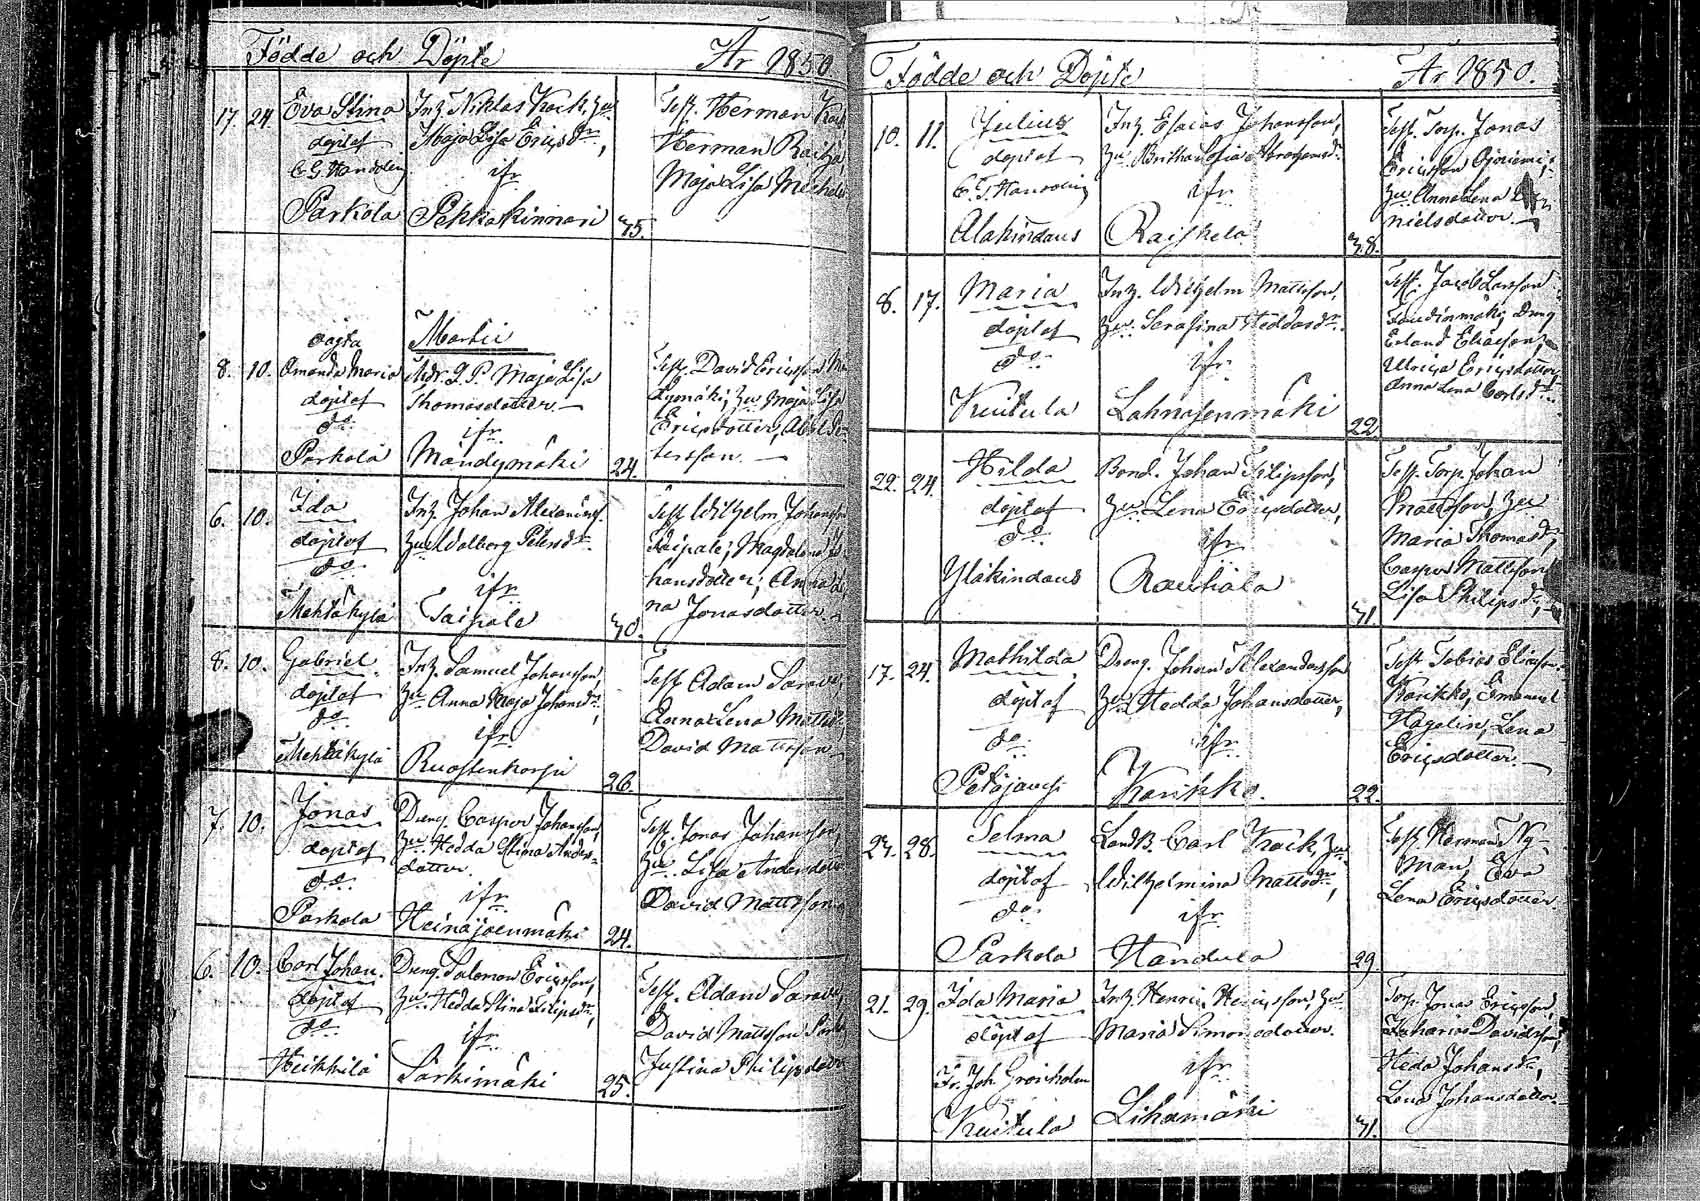 Födde och Döpte År 1850.
17. 24. Eva Stina
döpt af
C. G. Hanodin
Parkola
Inh. Niklas Krook, hu
Maja Lisa Ericsdr,
ifr
Pehkakinnari
35.
Test. Herman
Herman
Maja Lisa Michels
Martii
8. 10. oägta
Amanda Maria
döpt af
do
Parkola
Maja Lisa
Thomasdotter.
ifr
Mändymäki
24.
Test. David Ericsson
dymäki; hu Maja Lisa
Ericsdotter, Abel Pe-
tersson.
6. 10. Ida
döpt af
do
Mehtäkylä
Inh. Johan Alexanderss.
hu Walborg Petersdr.
ifr
Taipale
30.
Test. Wilhelm Johansson
Taipale; Magdalena Jo-
hansdotter; Anna
na Jonasdotter.
8. 10. Gabriel
döpt af
do
Mehtäkylä
Inh. Samuel Johansson,
hu Anna Maja Johansdr,
ifr
Ruostenkorpi
26.
Test. Adam
Anna Lena Matts
David Mattsson
7. 10. Jonas
döpt af
do
Parkola
Dreng. Casper Johansson,
hu Hedda Stina Anders-
dotter.
ifr
Heinäjoenmäki
24.
Test. Jonas Johansson,
hu Lisa Andersdotter
David Mattsson
6. 10. Carl Johan
döpt af
do
Heikkilä
Dreng. Salomon Ericsson,
hu Hedda Stina Filipsdr,
ifr
Särkimäki
25.
Test. Adam
David Mattsson
Justina Philipsdotter
Födde och Döpte År 1850.
10. 11. Julius
döpt af
C. G. Hanodin
Alakindaus
Inh. Esaias Johansson,
hu Britha Sofia Abrahamsdr.
ifr
Raiskela
38.
Test. Torp. Jonas
Ericsson Ojaniemi;
hu Anna Lena Da-
nielsdotter.
8. 17. Maria
döpt af
do
Kuitula
Inh. Wilhelm Mattsson,
hu Serafina Heddasdr.
ifr
Lahnasenmäki
22.
Test. Jacob Larsson
Dreng
Erland Eliasson,
Ulrica Ericsdotter,
Anna Lena Carlsdr.
22. 24. Hilda
döpt af
do
Yläkindaus
Bond. Johan Filipsson,
hu Lena Ericsdotter,
ifr
Rauhala
31.
Test. Torp. Johan
Mattsson, hu
Maria Thomasdr,
Casper Mattsson
Lisa Philipsdr,
17. 24. Mathilda
döpt af
do
Petäjäuxi
Dreng. Johan Alexandersson
hu Hedda Johansdotter,
ifr
Karikko.
22.
Test. Tobias Eliasson
Karikko, Emanuel
Hagelin, Lena
Ericsdotter.
27. 28. Selma
döpt af
do
Parkola
Landb. Carl Krook, hu
Wilhelmina Mattsdr,
ifr
Handula
29.
Test. Herman Ny-
man, Eva
Lena Ericsdotter
21. 29. Ida Maria
döpt af
Joh. Grönholm
Kuitula
Inh. Henric Henricsson, hu
Maria Simonsdotter.
ifr
Lihamäki
31.
Torp. Jonas Ericsson,
Zacharias Davidsson,
Heda Johansdr,
Lena Johansdotter.